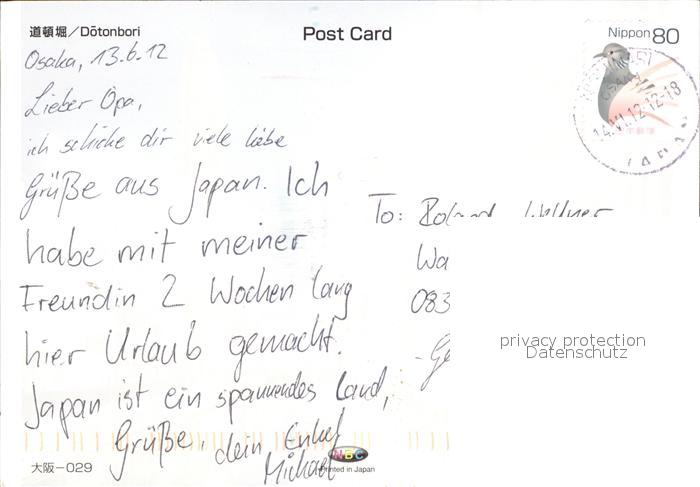 道頓堀/Dōtonbori
Post Card
Nippon 80
Osaka, 13.6.12
Lieber Opa,
ich schicke dir viele liebe
Grüße aus Japan. Ich
habe mit meiner
Freundin 2 Wochen lang
hier Urlaub gemacht.
Japan ist ein spannendes Land,
Grüße, dein Enkel
Michael
To: Roland
Wa
083
-Ge
14.VI.12.12-18
JAPAN
privacy protection
Datenschutz
大阪-029
NBC
Printed in Japan